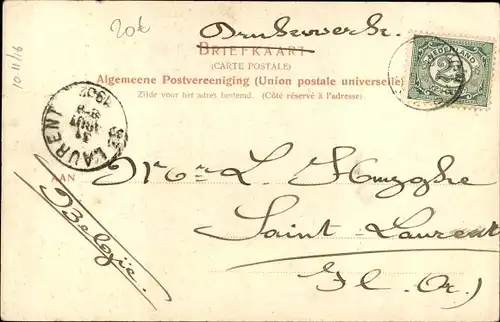 20€
Drukwerk.
BRIEFKAART
(CARTE POSTALE)
Algemeene Postvereeniging (Union postale universelle)
Zijde voor het adres bestemd. (Côté réservé à l'adresse).
NEDERLAND
2½
10-11/16
LAURENT
1903
AAN
Mr L.
Saint-Laurent
Fl. Or.)
Belgïe.